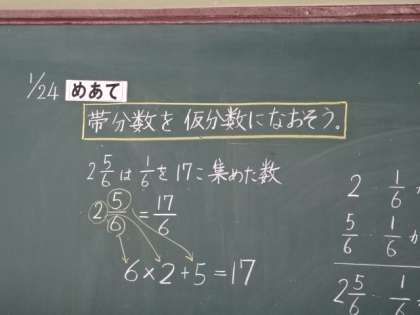 1/24 めあて
帯分数を仮分数になおそう。
2 5/6 は 1/6 を 17こ集めた数
2 5/6 = 17/6
6×2+5=17
2 1/6
5/6 1/6
2 5/6 1/6